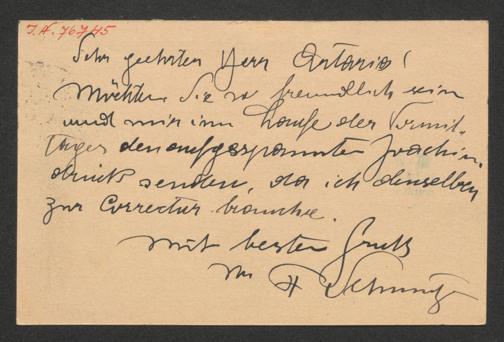 J.N. 76745
Sehr geehrter Herr Artaria!
Möchten Sie so freundlich sein
und mir im Laufe der Vormit-
tages den aufgespannten Joachim
druck senden, da ich denselben
zur Correctur brauche.
Mit besten Gruß